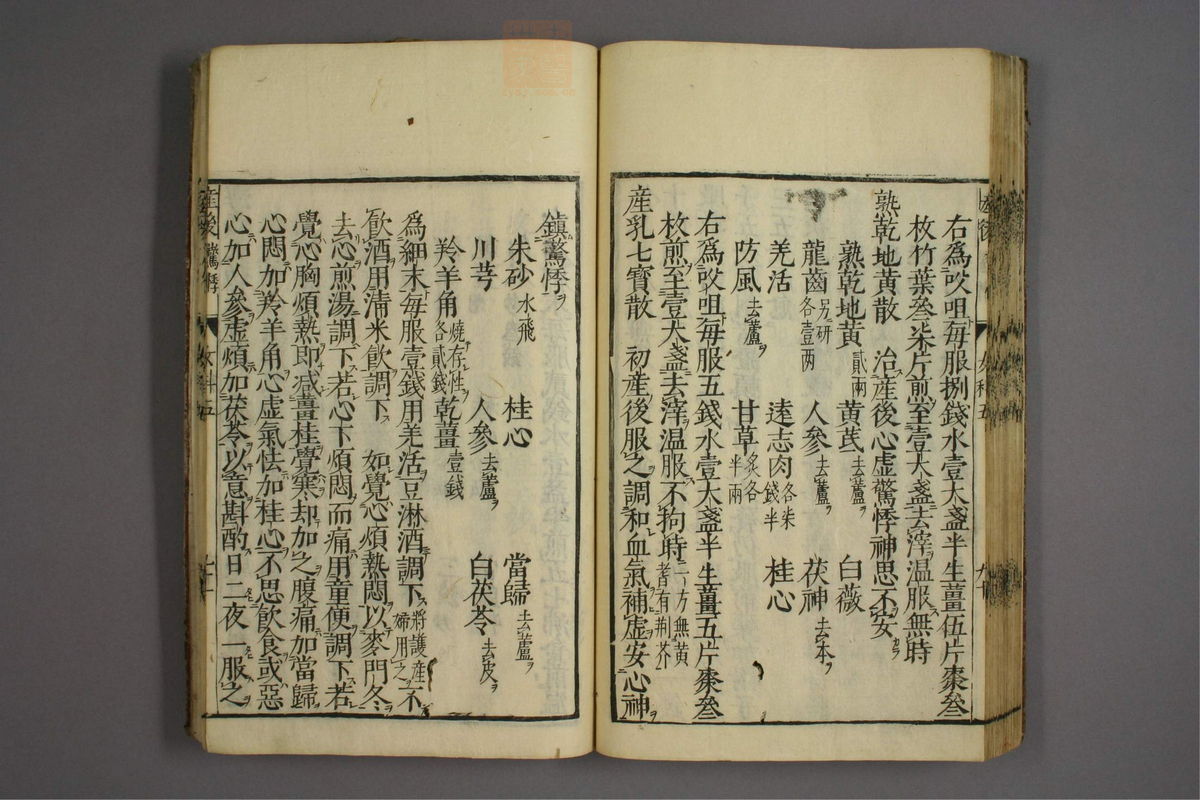 右為㕮咀毎服捌錢水壹大盞半生薑伍片棗叄
枚竹葉叄柒片煎至壹大盞去滓温服無時
熟乾地黃散 治産後心虚驚悸神思不安
熟乾地黃貳兩 黃芪去蘆 白薇
龍齒另研各壹两 人參去蘆 茯神去本
羌活 逺志肉各柒錢半 桂心
防風去蘆 甘草炙各半兩
右為㕮咀毎服五錢水壹大盞半生薑五片棗叄
枚煎至壹大盞去滓温服不拘時一方無黃耆有荆芥
産乳七寳散 初産後服之調和血氣補虚安心神
鎮驚悸
朱砂水飛 桂心 當歸去蘆
川芎 人參去蘆 白茯苓去皮
羚羊角燒存性各貳錢 乾薑壹錢
為細末毎服壹錢用羌活豆淋酒調下將護産婦用之不
飲酒用清米飲調下 如覺心煩熱悶以麥門冬
去心煎湯調下若心下煩悶而痛用童便調下若
覺心胸煩熱即减薑桂覺寒却加之腹痛加當歸
心悶加羚羊角心虚氣怯加桂心不思飲食或惡
心加人參虚煩加茯苓以意斟酌日二夜一服之
産後 驚悸 女科五